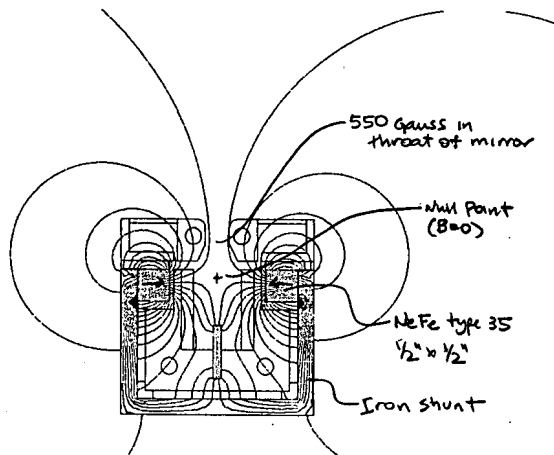 550 Gauss in
throat of mirror
Null Point
(B=0)
NeFe type 35
1/2" x 1/2"
Iron shunt